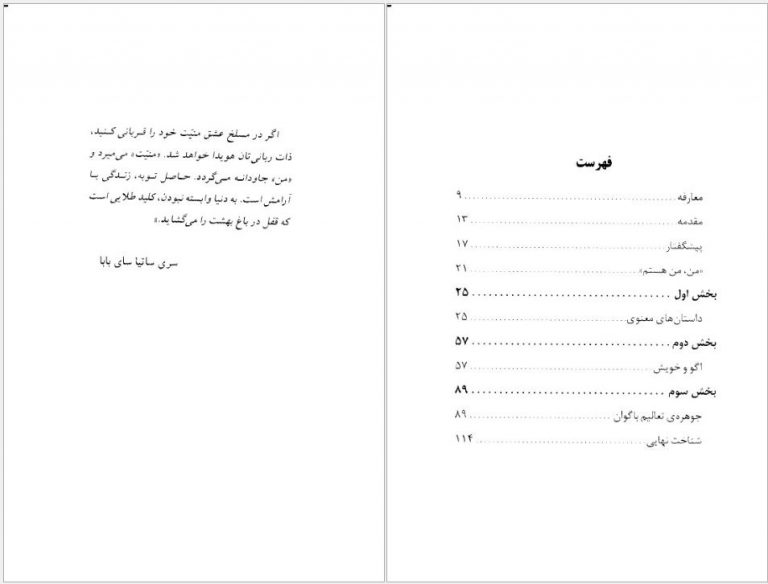 فهرست
معارفه ........ ۹
مقدمه ........ ۱۳
پیشگفتار ........ ۱۷
«من، من هستم» ........ ۲۱
بخش اول ........ ۲۵
داستان‌های معنوی ........ ۲۵
بخش دوم ........ ۵۷
اگو و خویش ........ ۵۷
بخش سوم ........ ۸۹
جوهره‌ی تعالیم باگوان ........ ۸۹
شناخت نهایی ........ ۱۱۴
اگر در مسلخ عشق منیّت خود را قربانی کنید،
ذات ربانی‌تان هویدا خواهد شد. «منیّت» می‌میرد و
«من» جاودانه می‌گردد. حاصل توبه، زندگی با
آرامش است. به دنیا وابسته نبودن، کلید طلایی است
که قفل در باغ بهشت را می‌گشاید.»
سری ساتیا سای بابا